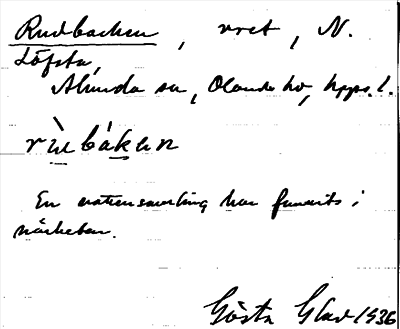 Rudbacken, vret, N.
Löfsta,
Alunda sn, Olands hd, Upps. l.
rùbákan
En vattensamling har funnits i
närheten.
Gösta Glad 1936